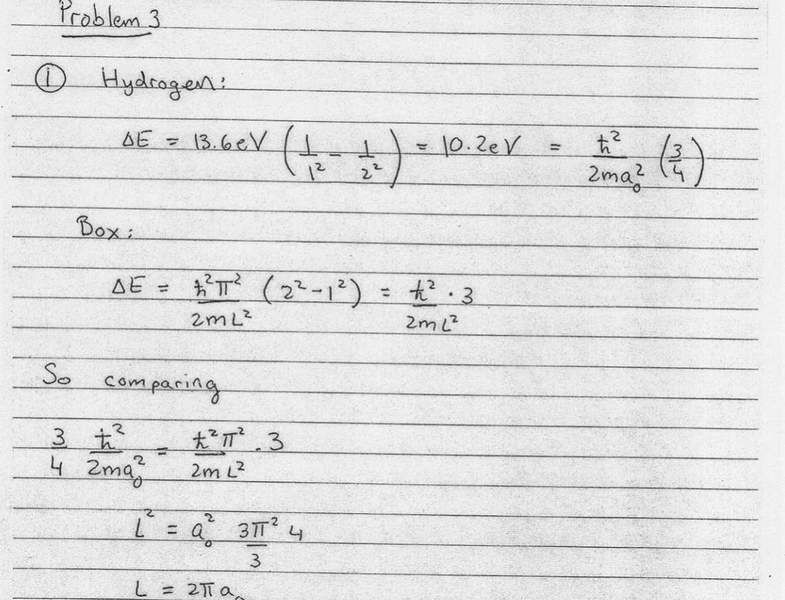 Problem 3
① Hydrogen:
ΔE = 13.6eV (1/1² - 1/2²) = 10.2eV = ħ²/2ma₀² (3/4)
Box:
ΔE = ħ²π²/2mL² (2²-1²) = ħ²/2mL² · 3
So comparing
3/4 ħ²/2ma₀² = ħ²π²/2mL² · 3
L² = a₀² 3π²/3 4
L = 2πa₀